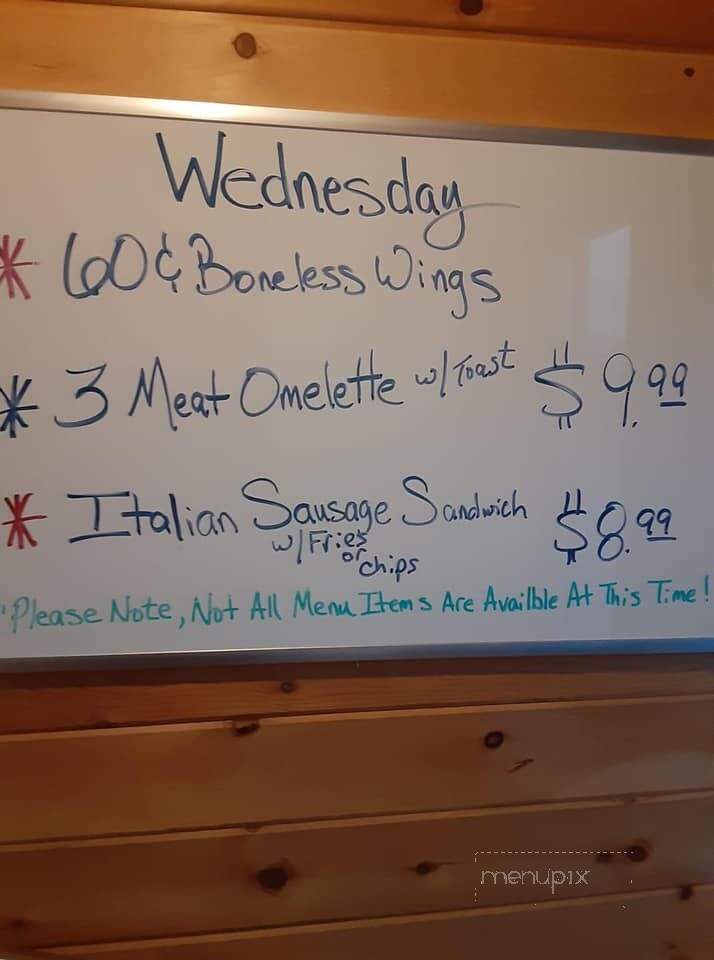 Wednesday
* 60¢ Boneless Wings
* 3 Meat Omelette w/Toast $9.99
* Italian Sausage Sandwich $8.99
w/Fries
or
chips
"Please Note, Not All Menu Items Are Availble At This Time!
menupix